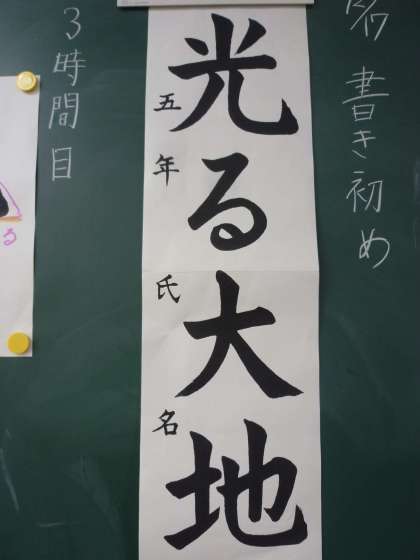 書き初め
光る大地
五年 氏名
3時間目
る